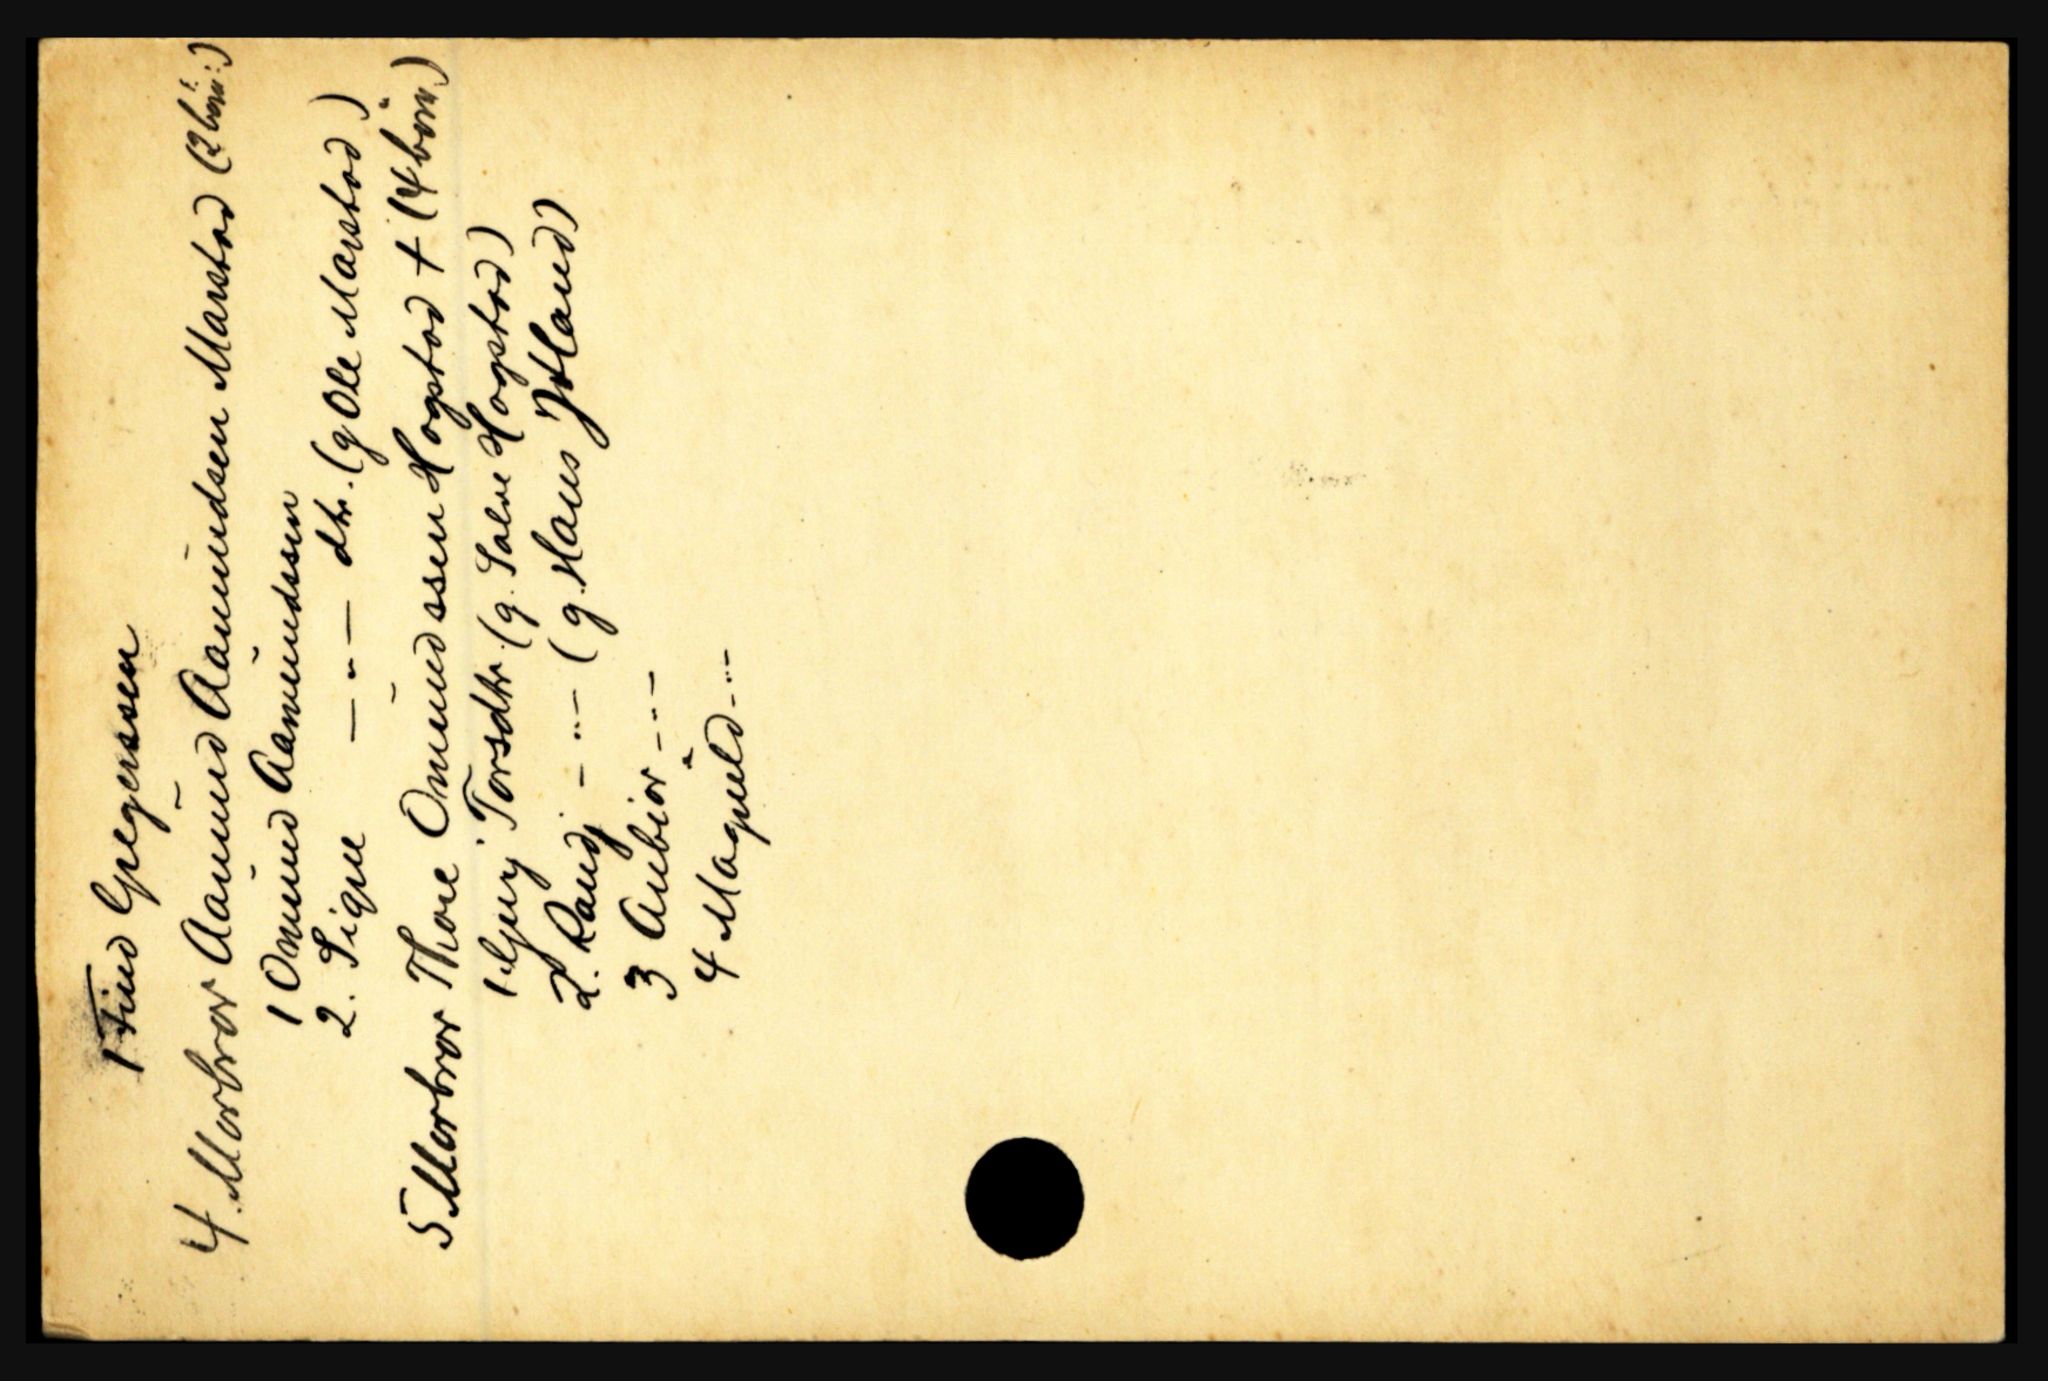 1 Find Gregerssen
4. Morbror Aamund Aamundsen Marstad (2 børn:)
1 Omund Aamundssen
2. Signe — " — dtr. (g Ole Marstad)
5 Morbror Thore Omundssen Hogstad + (4 børn)
1. Gury Torsdtr. (g. Salve Hogstad)
2. Randj - " - (g. Hans Jtland)
3 Anbior - " -
4 Magnild - " -